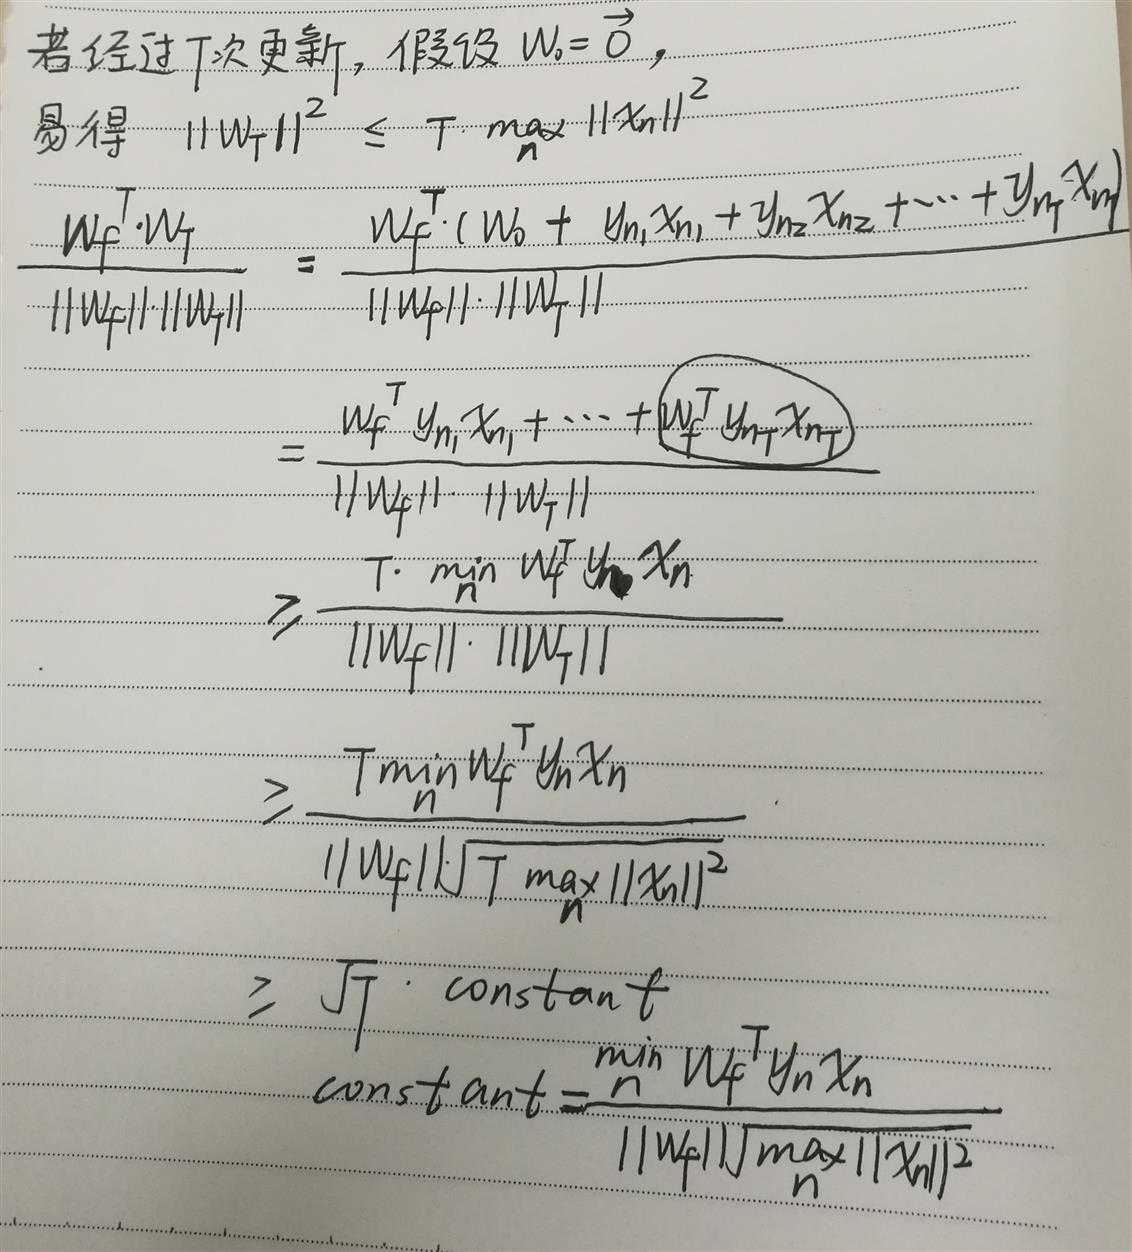 若经过T次更新, 假设 W₀ = 0⃗,
易得 ||W_T||² ≤ T · max_n ||x_n||²
W_f^T · W_T / ||W_f||·||W_T|| = W_f^T · (W₀ + y_{n1}x_{n1} + y_{n2}x_{n2} + ··· + y_{nT}x_{nT}) / ||W_f||·||W_T||
= W_f^T y_{n1}x_{n1} + ··· + W_f^T y_{nT}x_{nT} / ||W_f||· ||W_T||
≥ T· min_n W_f^T y_n x_n / ||W_f||· ||W_T||
≥ T min_n W_f^T y_n x_n / ||W_f||·√(T max_n ||x_n||²)
≥ √T · constant
constant = min_n W_f^T y_n x_n / ||W_f||√(max_n ||x_n||²)